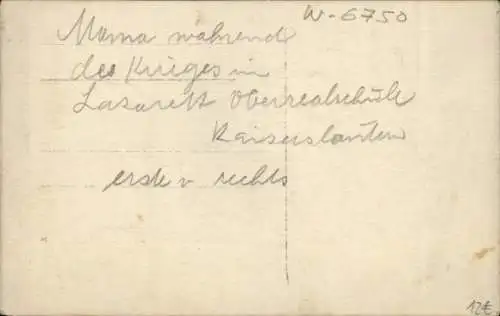 W-6750
Mama während
des Krieges im
Lazarett Oberrealschule
Kaiserslautern
erste v rechts
12€